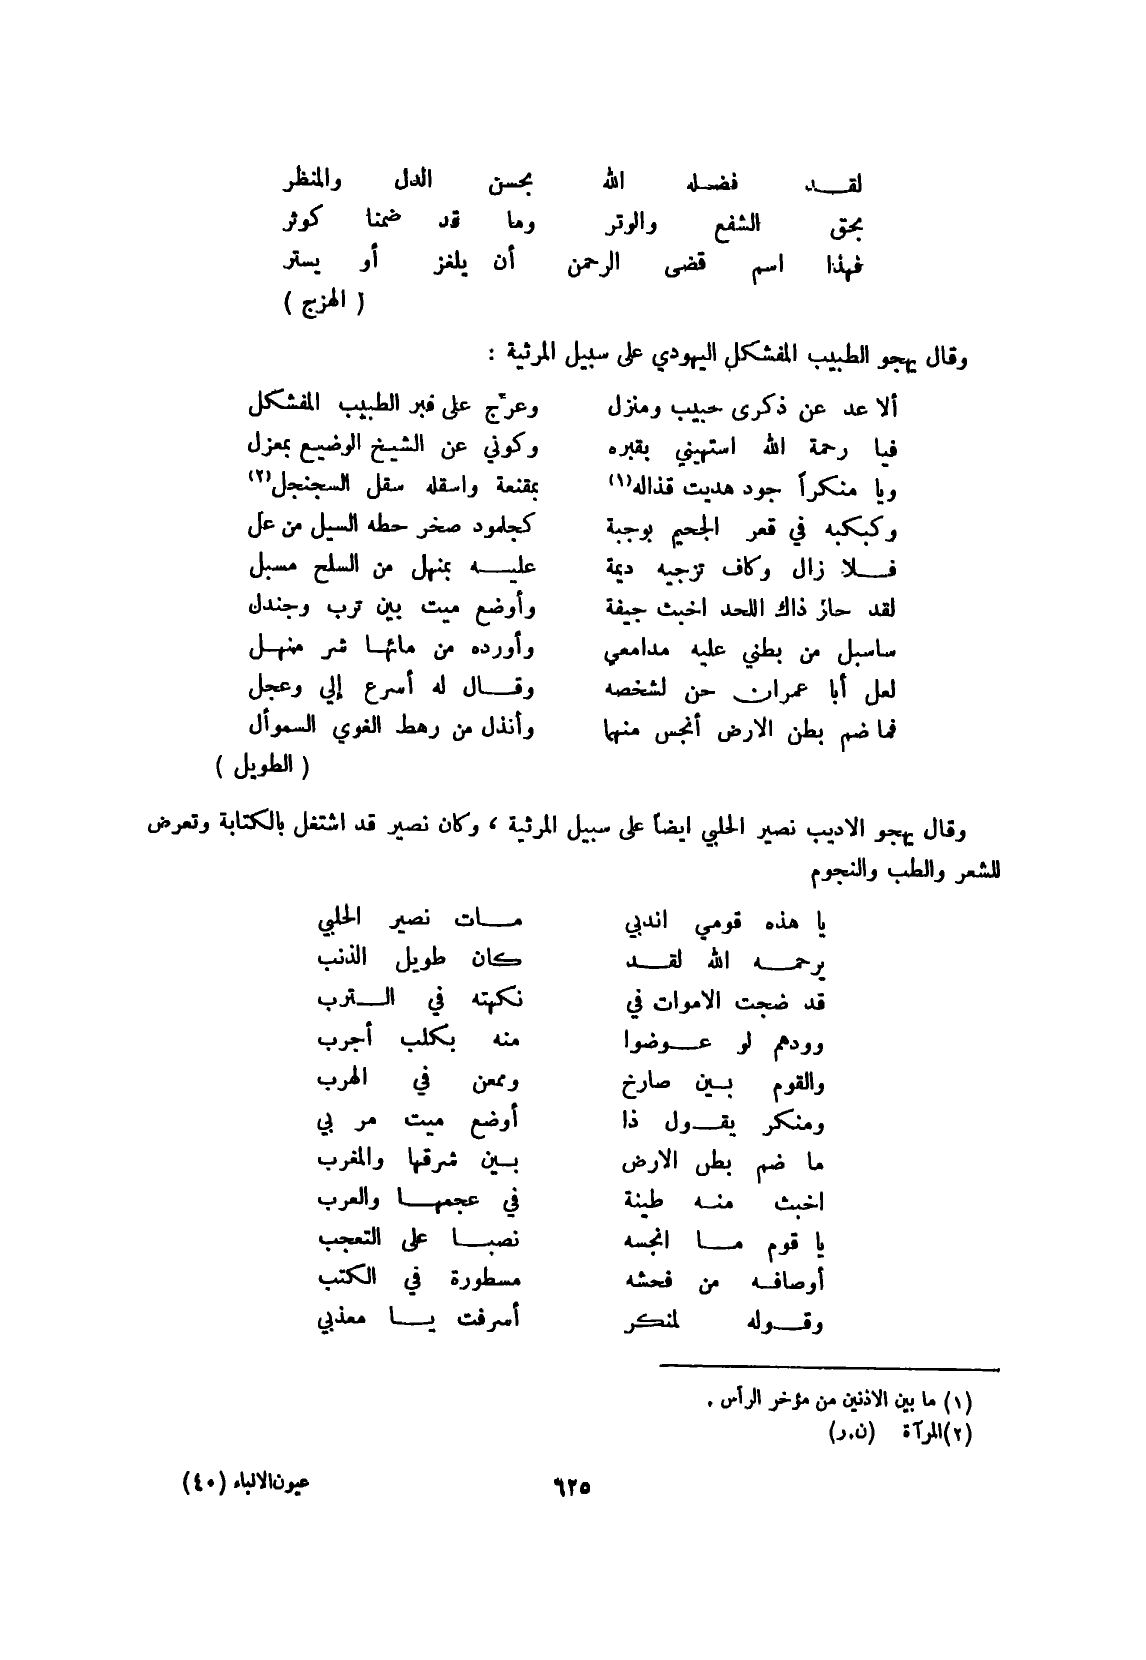 لقد فضله الله بحسن الدل والمنظر
بحق الشفع والوتر وما قد ضمنا كوثر
فهذا اسم قضى الرحمن أن يلغز أو يستر
( الهزج )
وقال يهجو الطبيب المفشكل اليهودي على سبيل المرثية :
ألا عد عن ذكرى حبيب ومنزل وعرّج على قبر الطبيب المفشكل
فيا رحمة الله استهيني بقبره وكوني عن الشيخ الوضيع بمعزل
ويا منكراً جود هديت قذاله(١) بمقنعة واسقله سقل السجنجل(٢)
وكبكبه في قعر الجحيم بوجبة كجلمود صخر حطه السيل من عل
فلا زال وكاف تزجيه ديمة عليه بمنهل من السلح مسبل
لقد حاز ذاك اللحد اخبث جيفة وأوضع ميت بين ترب وجندل
ساسبل من بطني عليه مدامعي وأورده من مائها شر منهل
لعل أبا عمران حن لشخصه وقال له أسرع إلي وعجل
فما ضم بطن الارض أنجس منها وأنذل من رهط الغوي السموأل
( الطويل )
وقال يهجو الاديب نصير الحلبي ايضاً على سبيل المرثية ، وكان نصير قد اشتغل بالكتابة وتعرض
للشعر والطب والنجوم
يا هذه قومي اندبي مات نصير الحلبي
يرحمه الله لقد كان طويل الذنب
قد ضجت الاموات في نكهته في الترب
وودهم لو عوضوا منه بكلب أجرب
والقوم بين صارخ وممعن في الهرب
ومنكر يقول ذا أوضع ميت مر بي
ما ضم بطن الارض بين شرقها والمغرب
اخبث منه طينة في عجمها والعرب
يا قوم ما انجسه نصبا على التعجب
أوصافه من فحشه مسطورة في الكتب
وقوله لمنكر أسرفت يا معذبي
(١) ما بين الاذنين من مؤخر الرأس .
(٢) المرآة (ن.ر)
٦٢٥ عيون الانباء (٤٠)